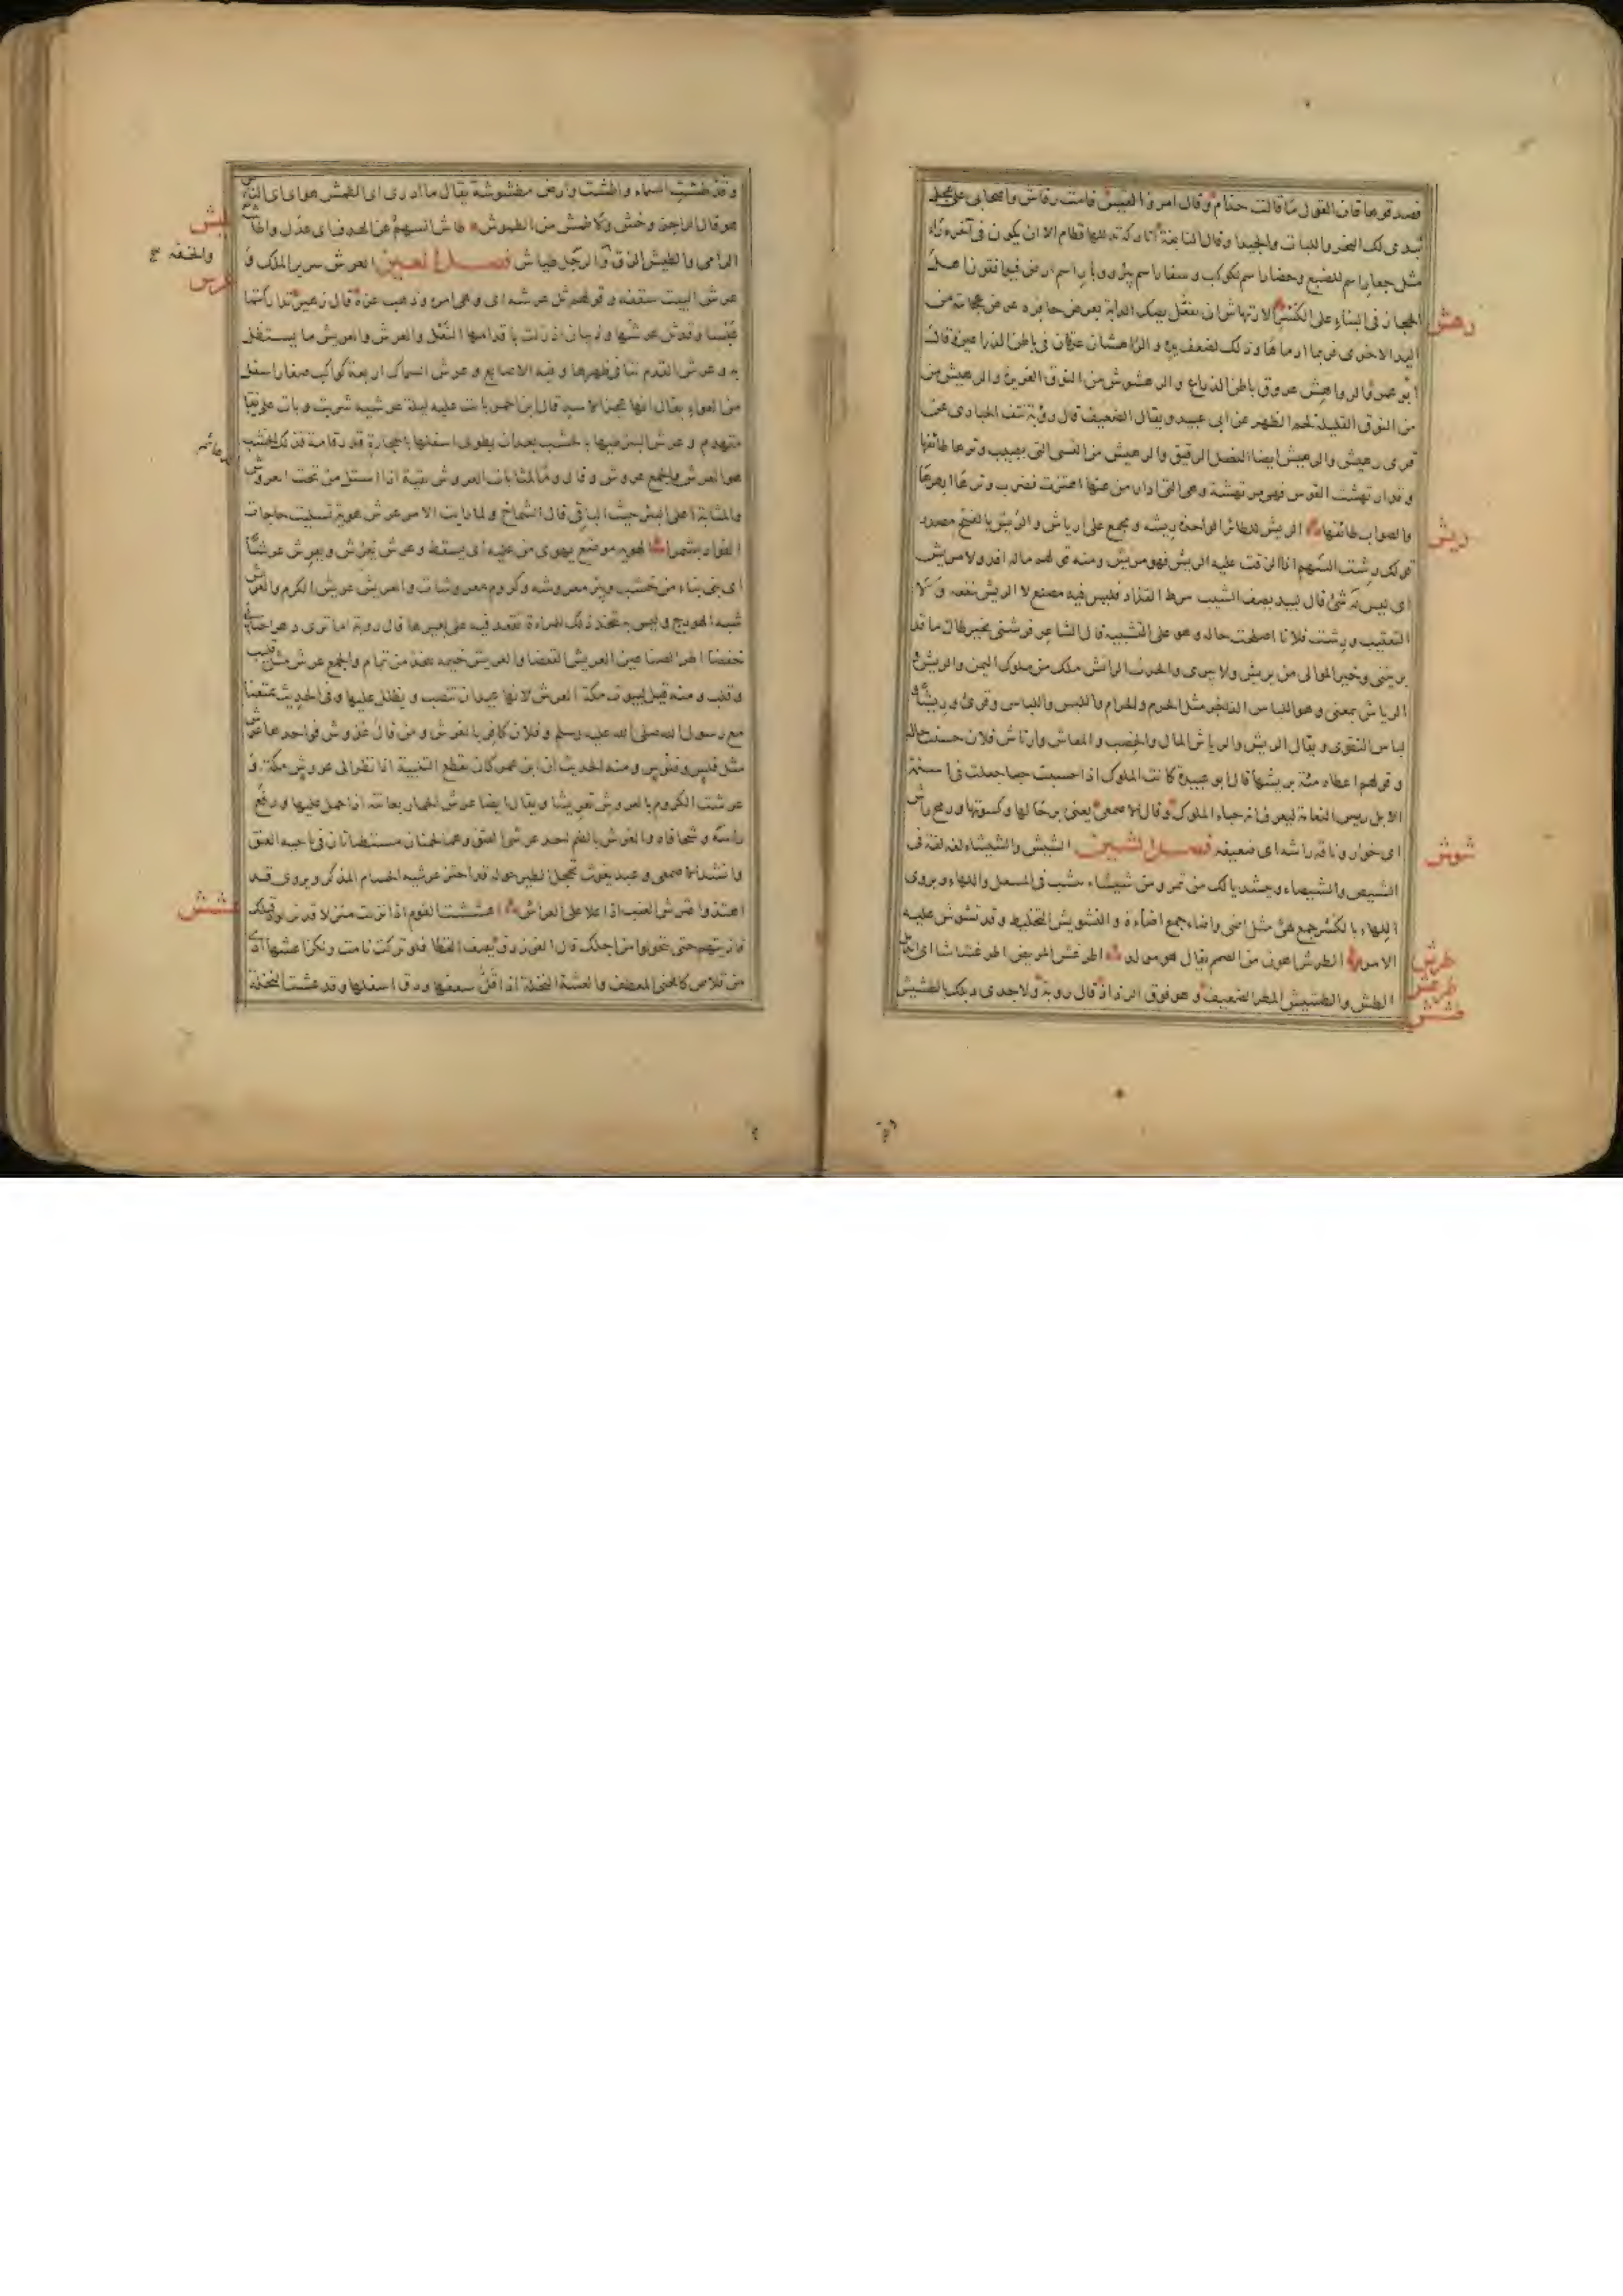 فصدقوها فان القول ما قالت حذام وقال امرؤ القيس قامت رقاش واصحابي على عجل
تبدي لك النحر واللبات والجيدا وقال النابغة اتاركة تدللها قطام الا ان يكون في آخره راء
مثل جعار اسم للضبع وحضار اسم كوكب وسفار اسم بئر ووبار اسم ارض فيوافقون اهل
الحجاز في البناء على الكسر الارتهاش ان تصطك الدابة بعرض حافره عرض عجايته من
رهش
اليد الاخرى فربما ادماها وذلك لضعف يده والراهشان عرقان في باطن الذراعين وقال
ابو عمرو الرواهش عروق باطن الذراع والرهشوش من النوق الغزيرة والرهيش من
من النوق القليلة لحم الظهر عن ابي عبيد ويقال الضعيف قال رؤبة نتف الحبارى عن
قرى رهيش والرهيش ايضا النصل الرقيق والرهيش من القسي التي يصيب وترها طائفها
وقد ارتهشت القوس فهي مرتهشة وهي التي اذا رمي عنها اهتزت فضرب وترها ابهرها
والصواب طائفها الريش للطائر الواحدة ريشة ويجمع على ارياش والريش بالفتح مصدر
ريش
قولك رشت السهم اذا الزقت عليه الريش فهو مريش ومنه قولهم ماله اقذ ولا مريش
اي ليس له شئ قال لبيد يصف الشيب مرط القذاذ فليس فيه مصنع لا الريش ينفعه ولا
التعقيب ورشت فلانا اصلحت حاله وهو على التشبيه قال الشاعر فرشني بخير طال ما قد
بريتني وخير الموالي من يريش ولا يبري والحرث الرائش ملك من ملوك اليمن والريش و
الرياش بمعنى وهو اللباس الفاخر مثل الحرم والحرام واللبس واللباس وقرئ وريشا و
لباس التقوى ويقال الريش والرياش المال والخصب والمعاش وارتاش فلان حسنت حاله
وقولهم اعطاه مئة بريشها قال ابو عبيدة كانت الملوك اذا حبت حباء جعلت في اسنمة
الابل ريش النعامة ليعرف انه حباء الملوك وقال الاصمعي يعني برحالها وكسوتها ورمح راش
اي خوار وناقة راشة اي ضعيفة فصل الشين الشيش والشيشاء لغة في
شوش
الشيص والشيصاء وينشد يا لك من تمر ومن شيشاء ينشب في المسعل واللهاء ويروى
اللهاء بالكسر جمع لهى مثل اضى واضاء جمع اضاءة والتشويش التخليط وقد تشوش عليه
الامر الطرش اهون من الصمم يقال هو مولد اطرغش المريض اطرغشاشا اي اندمل
طرش
طرغش
الطش والطشيش المطر الضعيف وهو فوق الرذاذ قال رؤبة ولا جدى وبلك بالطشيش
طشش
وقد طشت السماء واطشت وارض مطشوشة يقال ما ادري اي الطمش هو اي اي الناس
هو قال الراجز وحش ولا طمش من الطموش طاش السهم عن الهدف اي عدل واطاشه
طيش
الرامي والطيش النزق والرجل طياش فصل العين العرش سرير الملك و
والخفة صح
عرش
عرش البيت سقفه وقولهم ثل عرشه اي وهى امره وذهب عزه قال زهير تداركتما
عبسا وقد ثل عرشها وذبيان اذ زلت باقدامها النعل والعرش والعريش ما يستظل
به وعرش القدم ما نتأ في ظهرها وفيه الاصابع وعرش السماك اربعة كواكب صغار اسفل
من العواء يقال انها عجز الاسد قال ابن احمر باتت عليه ليلة عرشية شريت وبات على نقا
متهدم وعرش البئر طيها بالخشب بعد ان يطوى اسفلها بالحجارة قدر قامة فذلك الخشب
هو العرش والجمع عروش وقال وما لمثابات العروش بقية اذا استل من تحت العروش
الدعائم
والمثابة اعلى البئر حيث الساقي قال الشماخ ولما رايت الامر عرش هوية تسليت حاجات
الفؤاد بشمرا الهوية موضع يهوي من عليه اي يسقط وعرش يعرش ويعرش عرشا
اي بنى بناء من خشب وبئر معروشة وكروم معروشات والعريش عريش الكرم والعريش
شبه الهودج وليس به تتخذ ذلك المراءة تقعد فيه على بعيرها قال رؤبة اما ترى دهرا حناني
خفضا اطر الصناعين العريش القعضا والعريش خيمة من خشب وثمام والجمع عرش مثل قليب
وقلب ومنه قيل لبيوت مكة العرش لانها عيدان تنصب ويظلل عليها وفي الحديث تمتعنا
مع رسول الله صلى الله عليه وسلم وفلان كافر بالعرش ومن قال عروش فواحدها عرش
مثل فلس وفلوس ومنه الحديث ان ابن عمر كان يقطع التلبية اذا نظر الى عروش مكة و
عرشت الكروم بالعروش تعريشا ويقال ايضا عرش الحمار بعانته اذا حمل عليها ورفع
راسه وشحا فاه والعرش بالضم احد عرشي العنق وهما لحمتان مستطيلتان في ناحية العنق
وانشد الاصمعي وعبد يغوث تحجل الطير حوله قد احتز عرشيه الحسام المذكر ويروى قد
اهتذوا عترش العنب اذا علا على العراش اعششت القوم اذا نزلت منزلا قد نزلوه قبلك
عشش
فاذيتهم حتى تحولوا من اجلك قال الفرزدق يصف القطا فلو تركت نامت ولكن اعشها اذى
من قلاص كالحني المعطف والعشة النخلة اذا قل سعفها ودق اسفلها وقد عشت النخلة